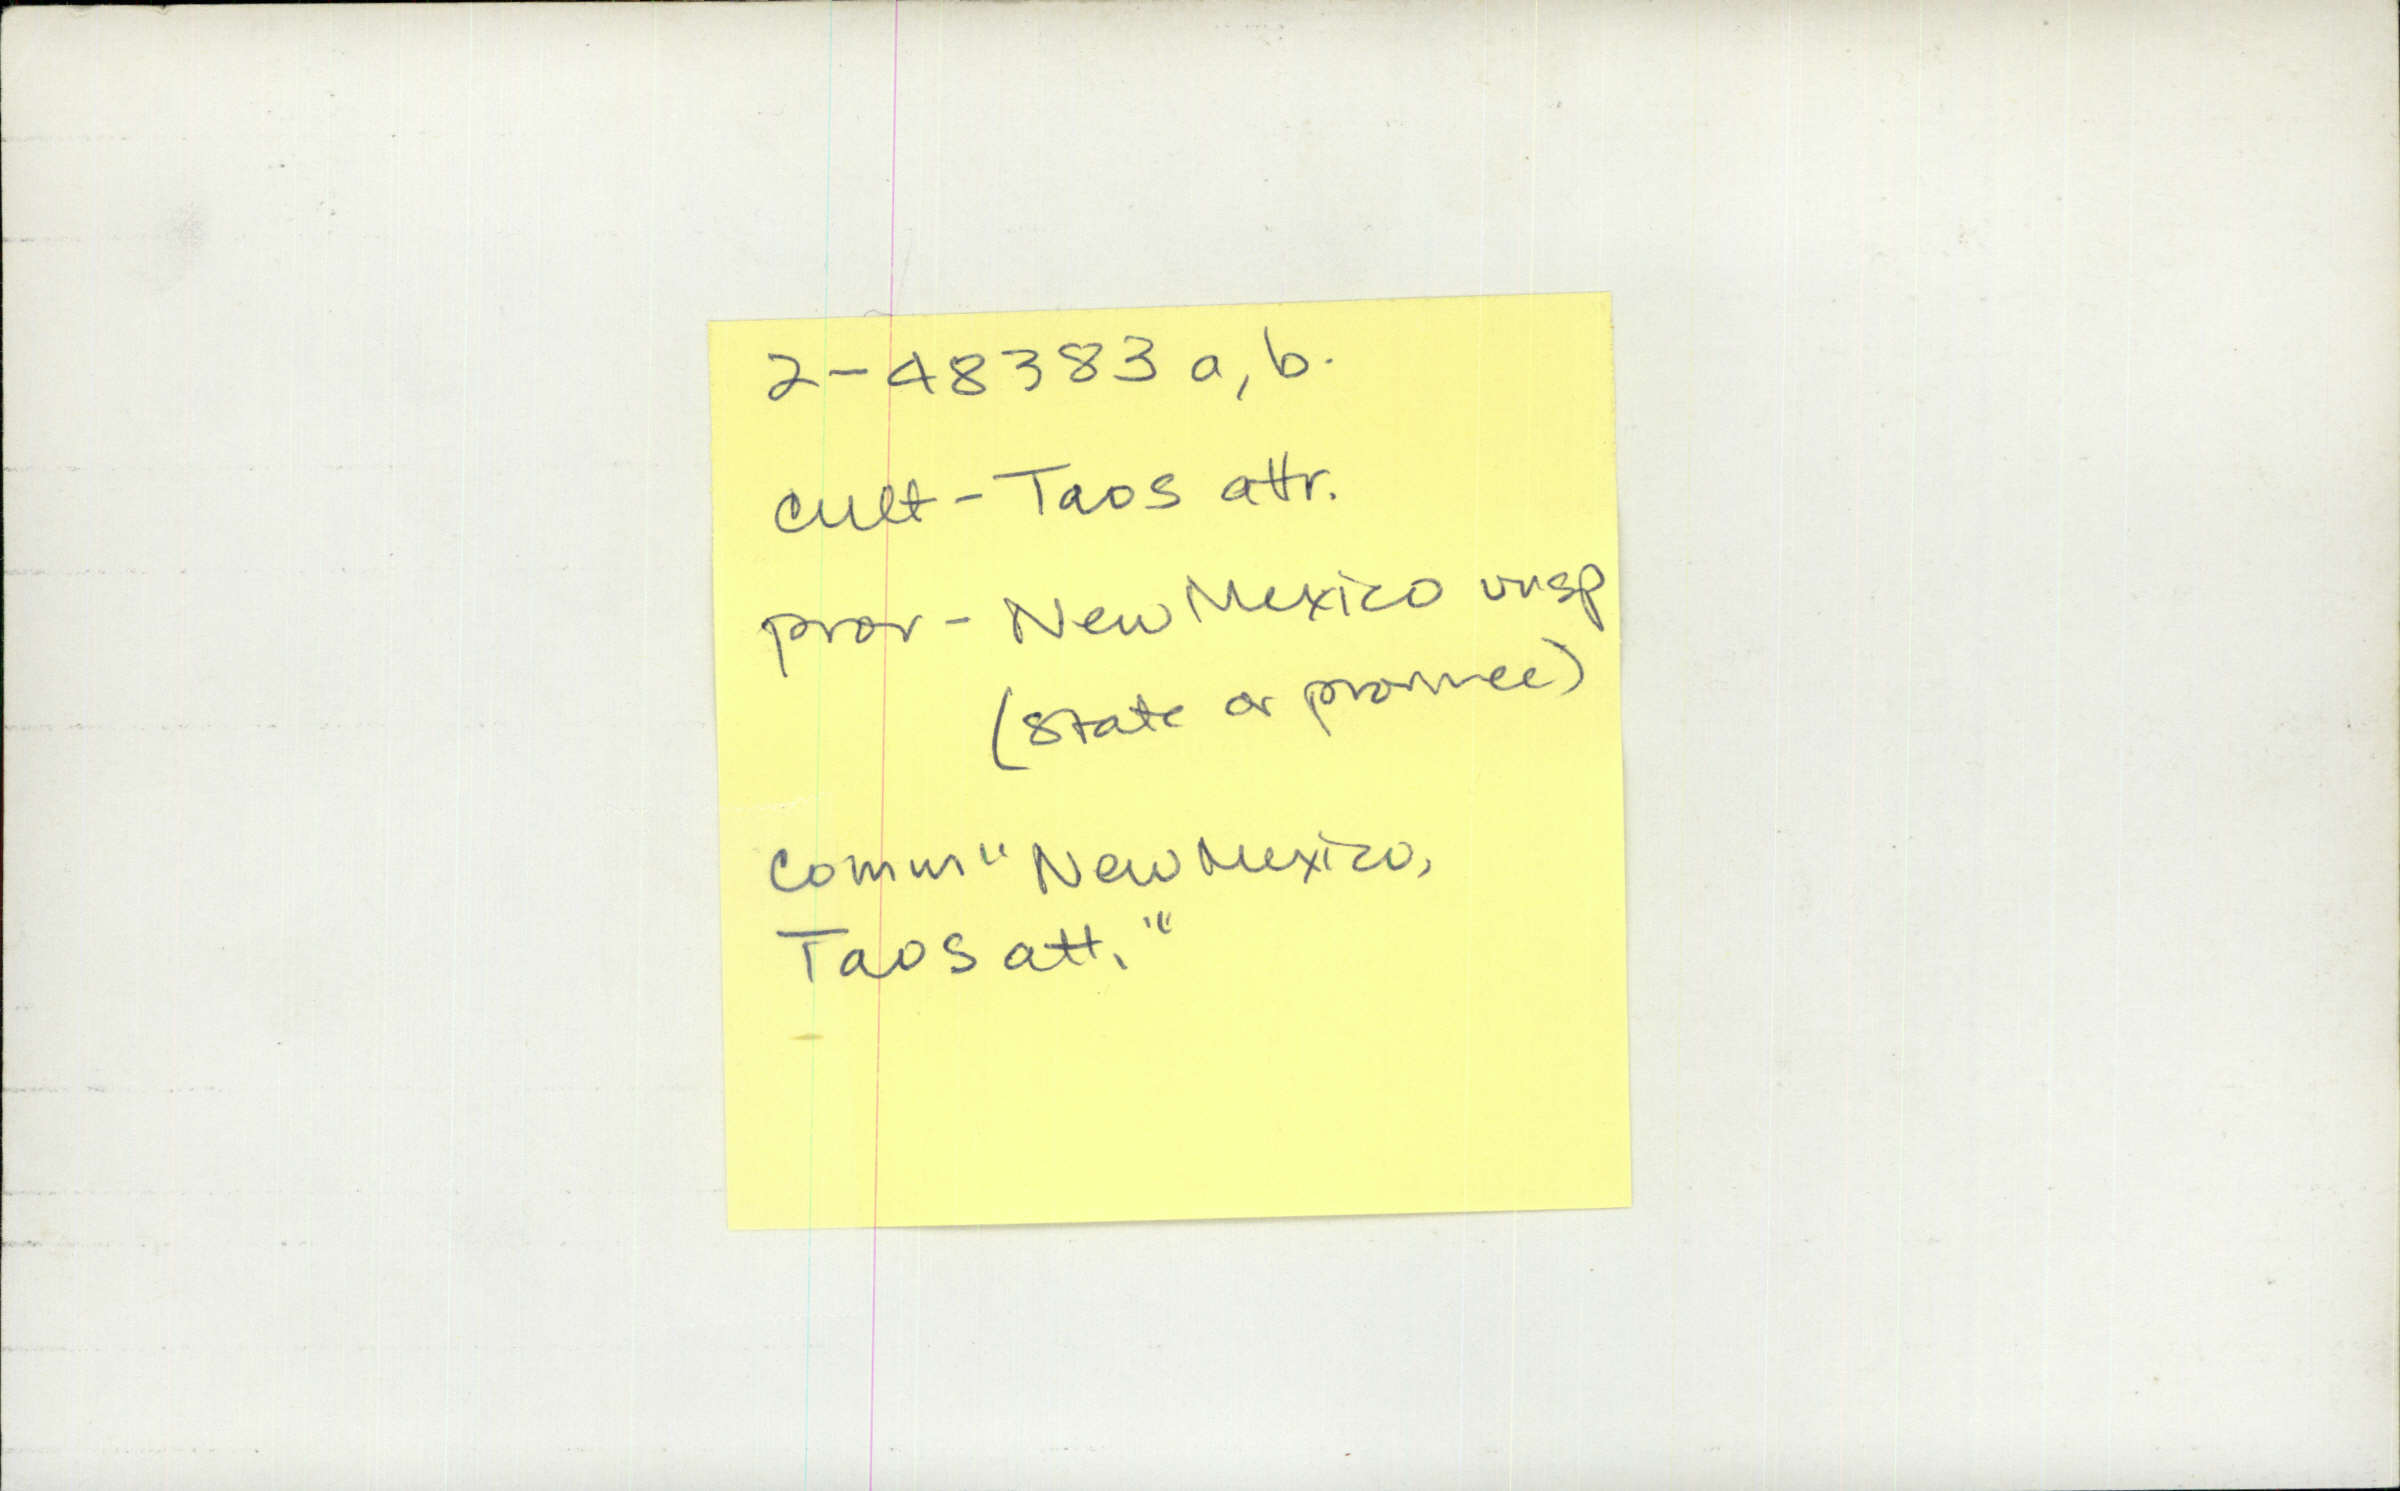 2-48383 a, b.
cult - Taos attr.
prov - New Mexico unsp
(state or province)
comm "New Mexico,
Taos att."